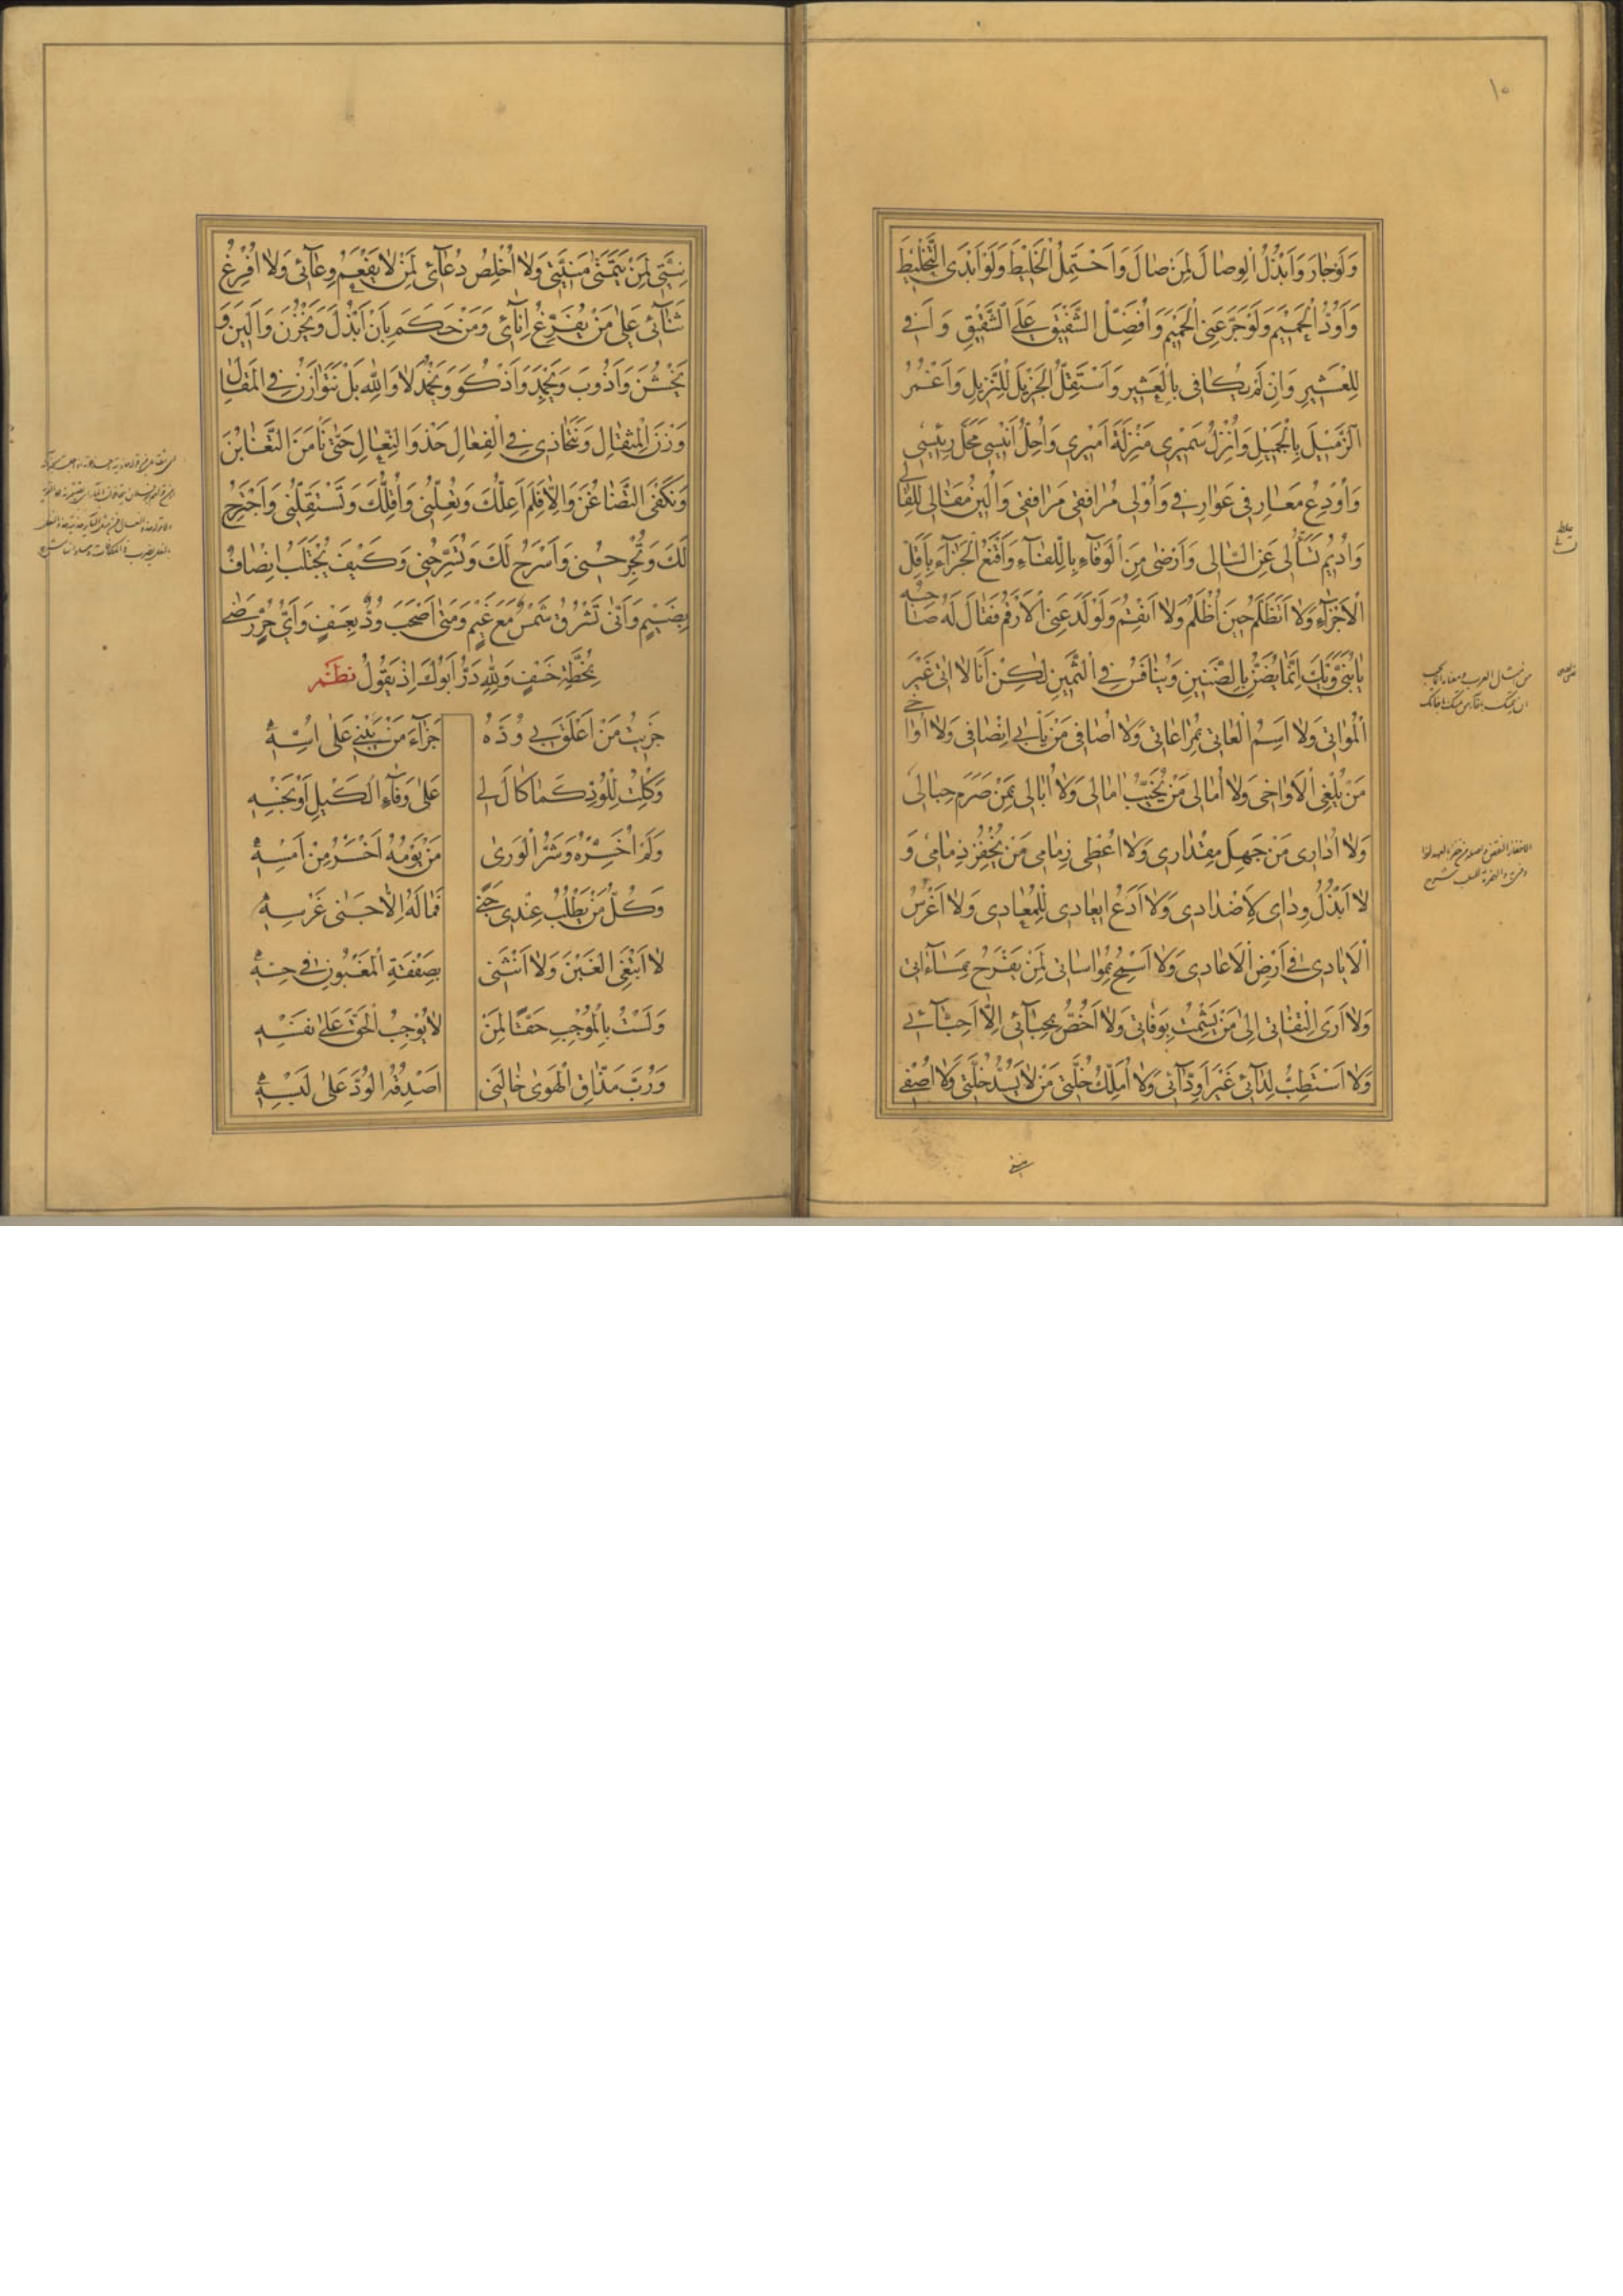 ١٠
وَلَوْ جَارَ وَاَبْذُلُ الْوِصَالَ لِمَنْ صَالَ وَاَحْتَمِلُ الْخَلِيْطَ وَلَوْ اَبْدَى التَّخْلِيْطَ
وَاَوَدُّ الْحَمِيْمَ وَلَوْ جَرَّعَنِى الْحَمِيْمَ وَاُفَضِّلُ الشَّفِيْقَ عَلَى الشَّقِيْقِ وَاَفِى
لِلْعَشِيْرِ وَاِنْ لَمْ يُكَافِى بِالْعَشِيْرِ وَاَسْتَقِلُّ الْجَزِيْلَ لِلنَّزِيْلِ وَاَغْمُرُ
الزَّمِيْلَ بِالْجَمِيْلِ وَاُنَزِّلُ سَمِيْرِى مَنْزِلَةَ اَمِيْرِى وَاُحِلُّ اَنِيْسِى مَحَلَّ رَئِيْسِى
وَاُوْدِعُ مَعَارِفِى عَوَارِفِى وَاُوْلِى مُرَافِقِى مَرَافِقِى وَاُلِيْنُ مَقَالِى لِلْقَالِى
وَاُدِيْمُ تَسْأَلِى عَنِ السَّالِى وَاَرْضٰى مِنَ الْوَفَآءِ بِاللَّفَآءِ وَاَقْنَعُ مِنَ الْجَزَآءِ بِاَقَلِّ
الْاَجْزَآءِ وَلَا اَتَظَلَّمُ حِيْنَ اُظْلَمُ وَلَا اَنْقِمُ وَلَوْ لَدَغَنِى الْاَرْقَمُ فَقَالَ لَهُ صَاحِبُهُ
يَا بُنَىَّ وَيْكَ اِنَّمَا يُضَنُّ بِالضَّنِيْنِ وَيُنَافَسُ فِى الثَّمِيْنِ لٰكِنْ اَنَا لَا اٰتِى غَيْرَ
الْمُوَاتِى وَلَا اَسِمُ الْعَاتِى بِمُرَاعَاتِى وَلَا اُصَافِى مَنْ يَأْبٰى اِنْصَافِى وَلَا اُوَاخِى
مَنْ يُلْغِى الْاَوَاخِى وَلَا اُمَالِى مَنْ يُخَيِّبُ اٰمَالِى وَلَا اُبَالِى بِمَنْ صَرَمَ حِبَالِى
وَلَا اُدَارِى مَنْ جَهِلَ مِقْدَارِى وَلَا اُعْطِى زِمَامِى مَنْ يُخْفِرُ ذِمَامِى وَ
لَا اَبْذُلُ وِدَادِى لِاَضْدَادِى وَلَا اَدَعُ اِيْعَادِى لِلْمُعَادِى وَلَا اَغْرِسُ
الْاَيَادِى فِى اَرْضِ الْاَعَادِى وَلَا اَسْمَحُ بِمُوَاسَاتِى لِمَنْ يَفْرَحُ بِمَسَآءَاتِى
وَلَا اَرَى الْتِفَاتِى اِلٰى مَنْ يَشْمَتُ بِوَفَاتِى وَلَا اَخُصُّ بِحِبَآئِى اِلَّا اَحِبَّآئِى
وَلَا اَسْتَطِبُّ لِدَآئِى غَيْرَ اَوِدَّآئِى وَلَا اُمَلِّكُ خُلَّتِى مَنْ لَا يَسُدُّ خَلَّتِى وَلَا اُصَفِّى
نِيَّتِى لِمَنْ يَتَمَنّٰى مَنِيَّتِى وَلَا اُخْلِصُ دُعَآئِى لِمَنْ لَا يُفْعِمُ وِعَآئِى وَلَا اُفْرِغُ
ثَنَآئِى عَلٰى مَنْ يُفَرِّغُ اِنَآئِى وَمَنْ حَكَمَ بِاَنْ اَبْذُلَ وَتَخْزُنَ وَاَلِيْنَ وَ
تَخْشُنَ وَاَذُوبَ وَتَجْمُدَ وَاَذْكُوَ وَتَخْمُدَ لَا وَاللهِ بَلْ نَتَوَازَنُ فِى الْمَقَالِ
وَزْنَ الْمِثْقَالِ وَنَتَحَاذٰى فِى الْفِعَالِ حَذْوَ النِّعَالِ حَتّٰى نَأْمَنَ التَّغَابُنَ
وَنُكْفَى التَّضَاغُنَ وَاِلَّا فَلِمَ اُعِلُّكَ وَتُعِلُّنِى وَاُقِلُّكَ وَتَسْتَقِلُّنِى وَاَجْتَرِحُ
لَكَ وَتَجْرَحُنِى وَاَسْرَحُ لَكَ وَتُسَرِّحُنِى وَكَيْفَ يُجْتَلَبُ اِنْصَافٌ
بِضَيْمٍ وَاَنّٰى تَشْرُقُ شَمْسٌ مَعَ غَيْمٍ وَمَتٰى اَصْحَبَ وُدٌّ بِعَسْفٍ وَاَىُّ حُرٍّ رَضِىَ
بِخُطَّةِ خَسْفٍ وَلِلّٰهِ دَرُّ اَبُوْكَ اِذْ يَقُوْلُ نظم
جَزَيْتُ مَنْ اَعْلَقَ بِى وُدَّهُ جَزَآءَ مَنْ يَبْنِى عَلٰى اُسِّهِ
وَكِلْتُ لِلْخِلِّ كَمَا كَالَ لِى عَلٰى وَفَآءِ الْكَيْلِ اَوْ بَخْسِهِ
وَلَمْ اُخَسِّرْهُ وَشَرُّ الْوَرٰى مَنْ يَوْمُهُ اَخْسَرُ مِنْ اَمْسِهِ
وَكُلُّ مَنْ يَطْلُبُ عِنْدِى جَنًى فَمَا لَهُ اِلَّا جَنٰى غَرْسِهِ
لَا اَبْتَغِى الْغَبْنَ وَلَا اَنْثَنِى بِصَفْقَةِ الْمَغْبُونِ فِى حِسِّهِ
وَلَسْتُ بِالْمُوْجِبِ حَقًّا لِمَنْ لَا يُوْجِبُ الْحَقَّ عَلٰى نَفْسِهِ
وَرُبَّ مَذَّاقِ الْهَوٰى خَالَنِى اَصْدُقُهُ الْوُدَّ عَلٰى لَبْسِهِ